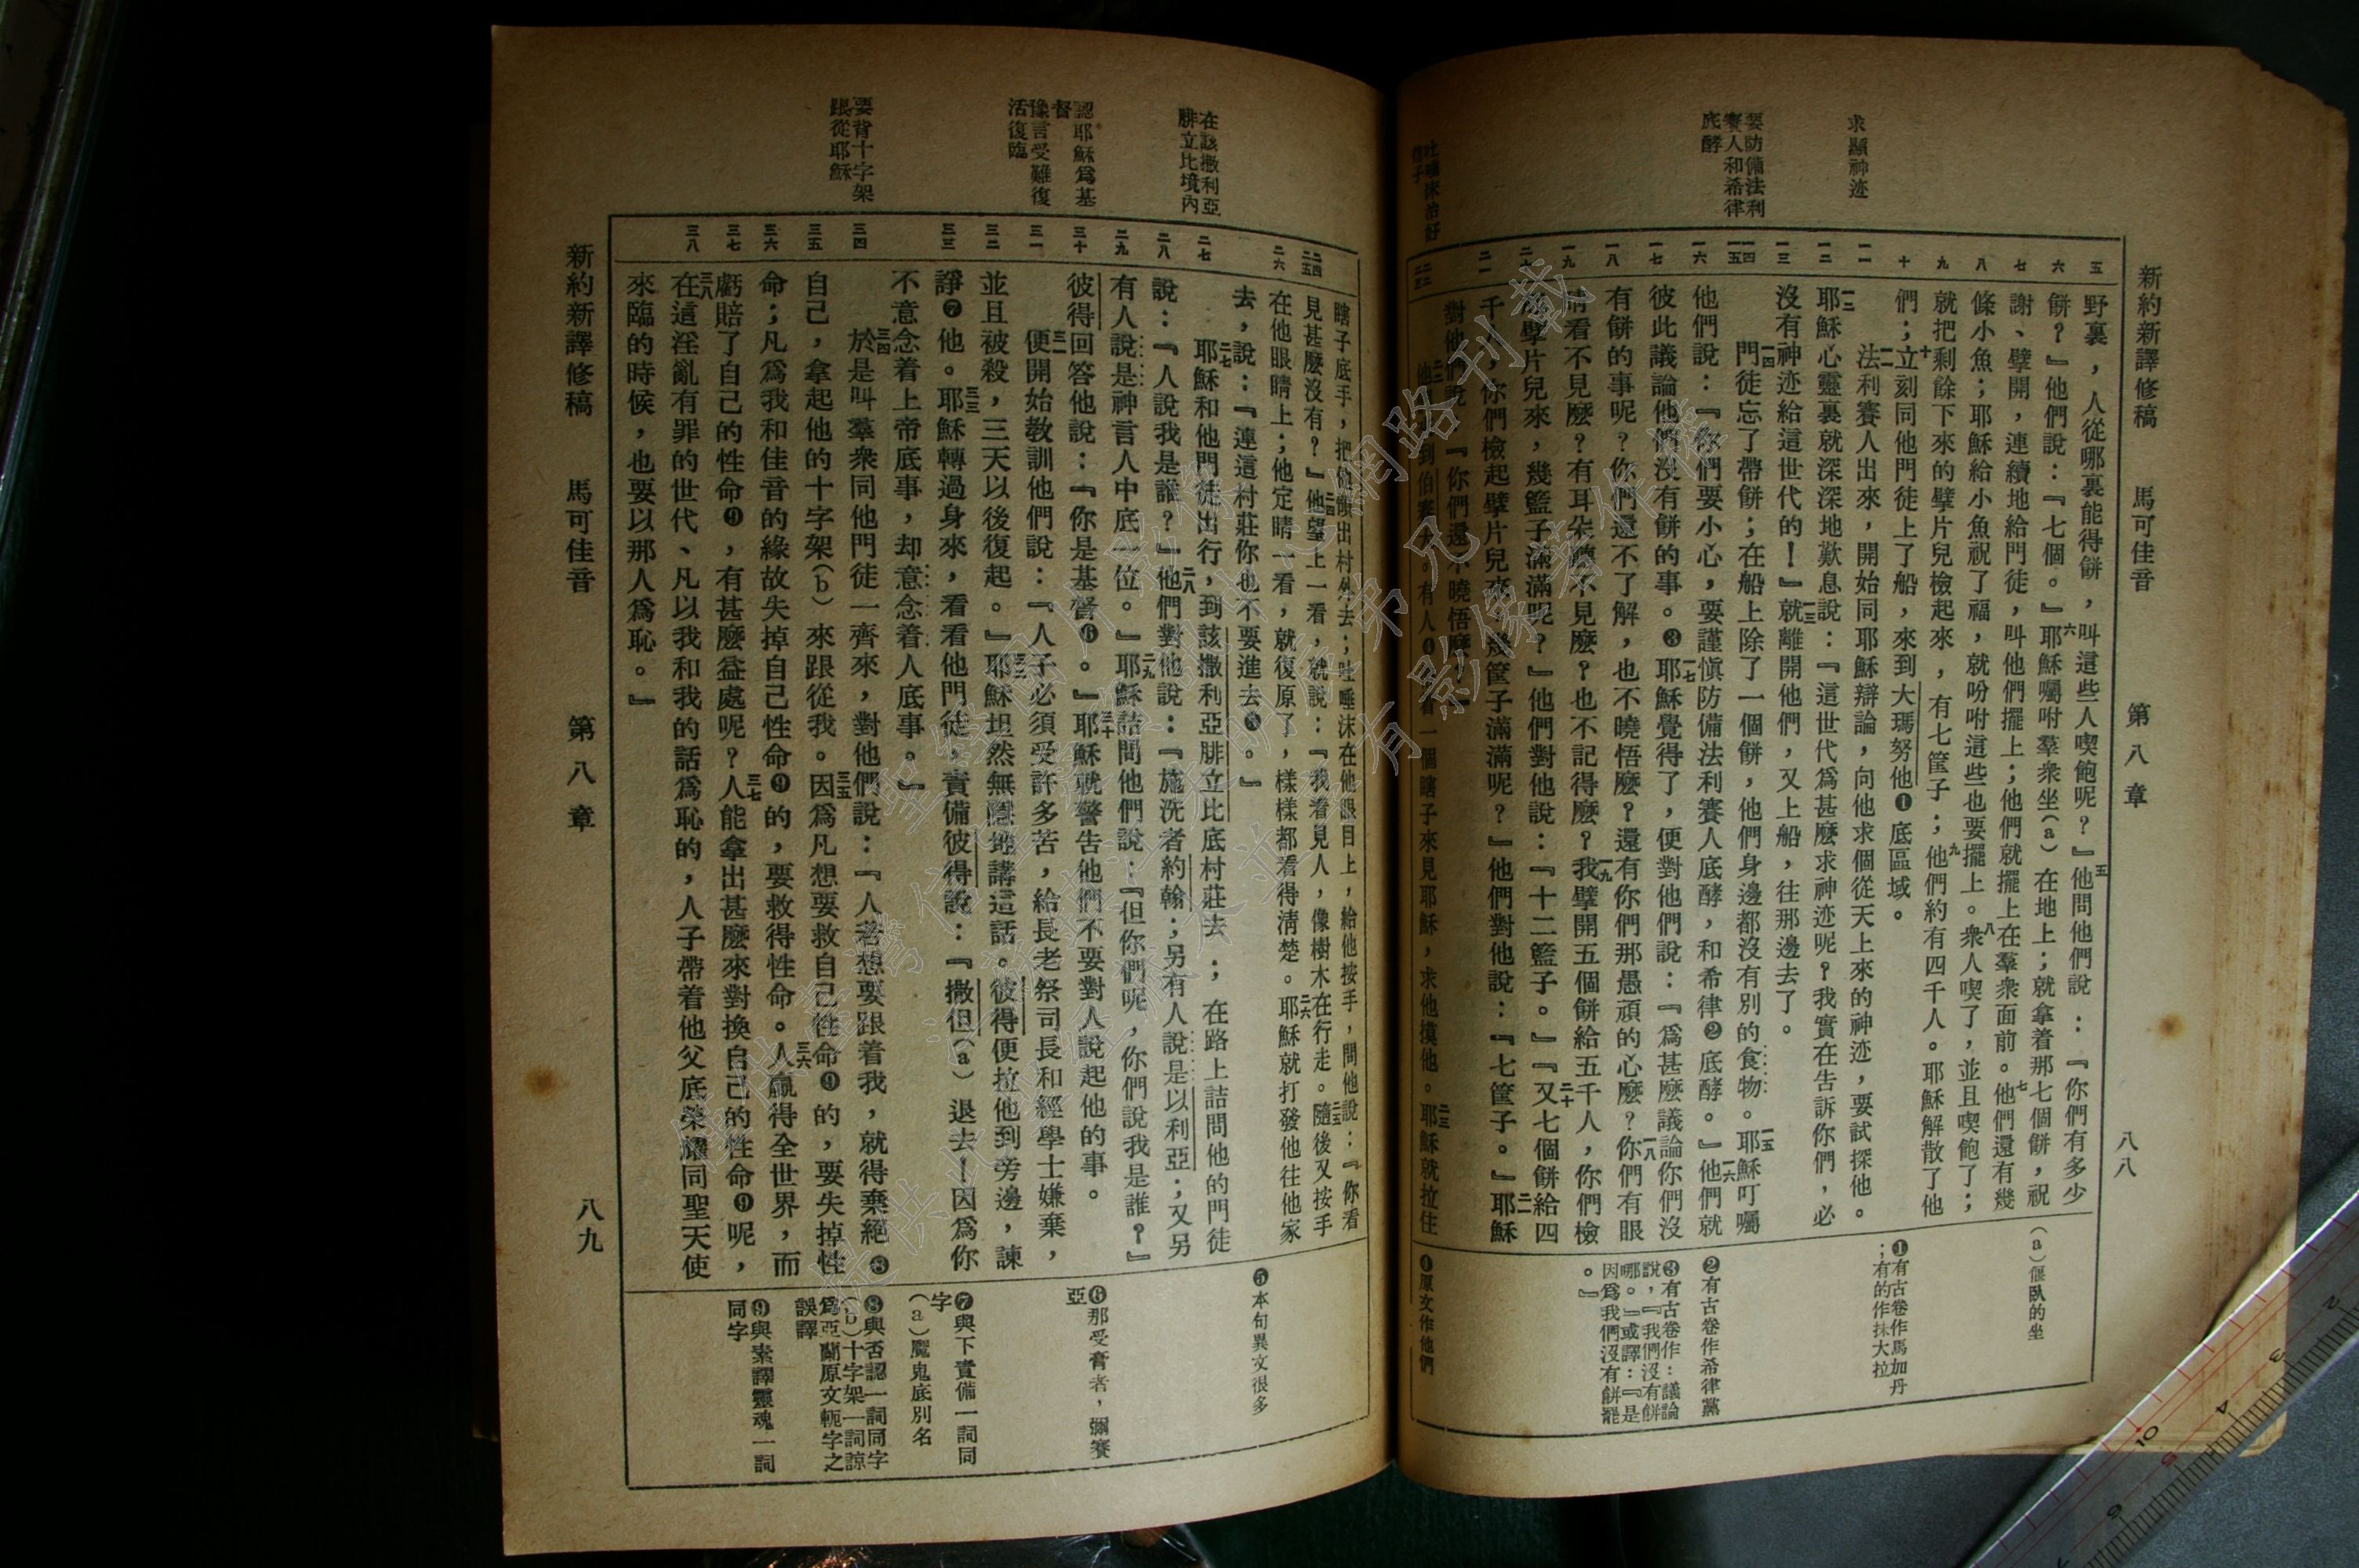 新約新譯修稿　馬可佳音　第八章　八八
求顯神迹
要防備法利
賽人和希律
底酵
五
六
七
八
九
十
一一
一二
一三
一四
一五
一六
一七
一八
一九
二十
二一
野裏，人從哪裏能得餅，叫這些人喫飽呢？』五他問他們說：『你們有多少
餅？』他們說：『七個。』六耶穌囑咐羣衆坐(a)在地上；就拿着那七個餅，祝
謝、擘開，連續地給門徒，叫他們擺上；他們就擺上在羣衆面前。七他們還有幾
條小魚；耶穌給小魚祝了福，就吩咐這些也要擺上。八衆人喫了，並且喫飽了；
就把剩餘下來的擘片兒檢起來，有七筐子；九他們約有四千人。耶穌解散了他
們；十立刻同他門徒上了船，來到大瑪努他❶底區域。
一一法利賽人出來，開始同耶穌辯論，向他求個從天上來的神迹，要試探他。
一二耶穌心靈裏就深深地歎息說：『這世代爲甚麽求神迹呢？我實在告訴你們，必
沒有神迹給這世代的！』一三就離開他們，又上船，往那邊去了。
一四門徒忘了帶餅；在船上除了一個餅，他們身邊都沒有別的食物。一五耶穌叮囑
他們說：『你們要小心，要謹愼防備法利賽人底酵，和希律❷底酵。』一六他們就
彼此議論他們沒有餅的事。❸一七耶穌覺得了，便對他們說：『爲甚麽議論你們沒
有餅的事呢？你們還不了解，也不曉悟麽？還有你們那愚頑的心麽？一八你們有眼
睛看不見麽？有耳朵聽不見麽？也不記得麽？一九我擘開五個餅給五千人，你們檢
起擘片兒來，幾籃子滿滿呢？』他們對他說：『十二籃子。』『二十又七個餅給四
千人，你們檢起擘片兒來，幾筐子滿滿呢？』他們對他說：『七筐子。』二一耶穌
對他們說：『你們還不曉悟麽？』
到伯賽大。有人❹
一個瞎子來見耶穌，求他摸他。二三耶穌就拉住
(a)偃臥的坐
❶有古卷作馬加丹
；有的作抹大拉
❷有古卷作希律黨
❸有古卷作：議論
說，『我們沒有餅
哪。』或譯：『是
因爲我們沒有餅罷
。』
❹原文作他們
在該撒利亞
腓立比境內
認耶穌爲基
督
豫言受難復
活復臨
要背十字架
跟從耶穌
二四
二五
二六
二七
二八
二九
三十
三一
三二
三三
三四
三五
三六
三七
三八
瞎子底手，把他領出村外去；吐唾沫在他眼目上，給他按手，問他說：『你看
見甚麽沒有？』二四他望上一看，就說：『我看見人，像樹木在行走。二五隨後又按手
在他眼睛上；他定睛一看，就復原了，樣樣都看得淸楚。二六耶穌就打發他往他家
去，說：『連這村莊你也不要進去❺。』
二七耶穌和他門徒出行，到該撒利亞腓立比底村莊去；在路上詰問他的門徒
說：『人說我是誰？』二八他們對他說：『施洗者約翰；另有人說是以利亞；又另
有人說是神言人中底一位。』二九耶穌詰問他們說：『但你們呢，你們說我是誰？』
彼得回答他說：『你是基督❻。』三十耶穌就警告他們不要對人說起他的事。
三一便開始教訓他們說：『人子必須受許多苦，給長老祭司長和經學士嫌棄，
並且被殺，三天以後復起。』三二耶穌坦然無隱地講這話。彼得便拉他到旁邊，諫
諍❼他。三三耶穌轉過身來，看看他門徒，責備彼得說：『撒但(a)退去！因爲你
不意念着上帝底事，却意念着人底事。』
三四於是叫羣衆同他門徒一齊來，對他們說：『人若想要跟着我，就得棄絕❽
自己，拿起他的十字架(b)來跟從我。三五因爲凡想要救自己性命❾的，要失掉性
命；凡爲我和佳音的緣故失掉自己性命❾的，要救得性命。三六人贏得全世界，而
虧賠了自己的性命❾，有甚麽益處呢？三七人能拿出甚麽來對換自己的性命❾呢，
三八在這淫亂有罪的世代、凡以我和我的話爲恥的，人子帶着他父底榮耀同聖天使
來臨的時候，也要以那人爲恥。』
❺本句異文很多
❻那受膏者，彌賽
亞
❼與下責備一詞同
字
(a)魔鬼底別名
❽與否認一詞同字
(b)十字架一詞諒
爲亞蘭原文軛字之
誤譯
❾與素譯靈魂一詞
同字
新約新譯修稿　馬可佳音　第八章　八九